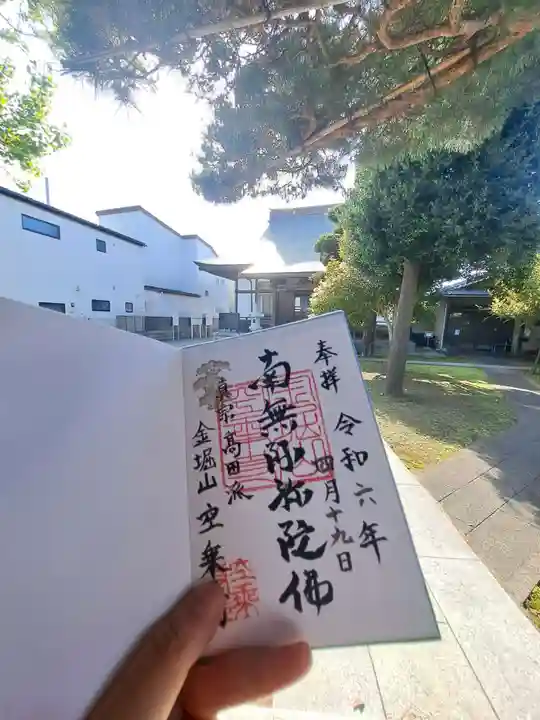 奉拝
令和六年
四月十九日
南無阿弥陀佛
真宗高田派
金堀山 空乗
空乗